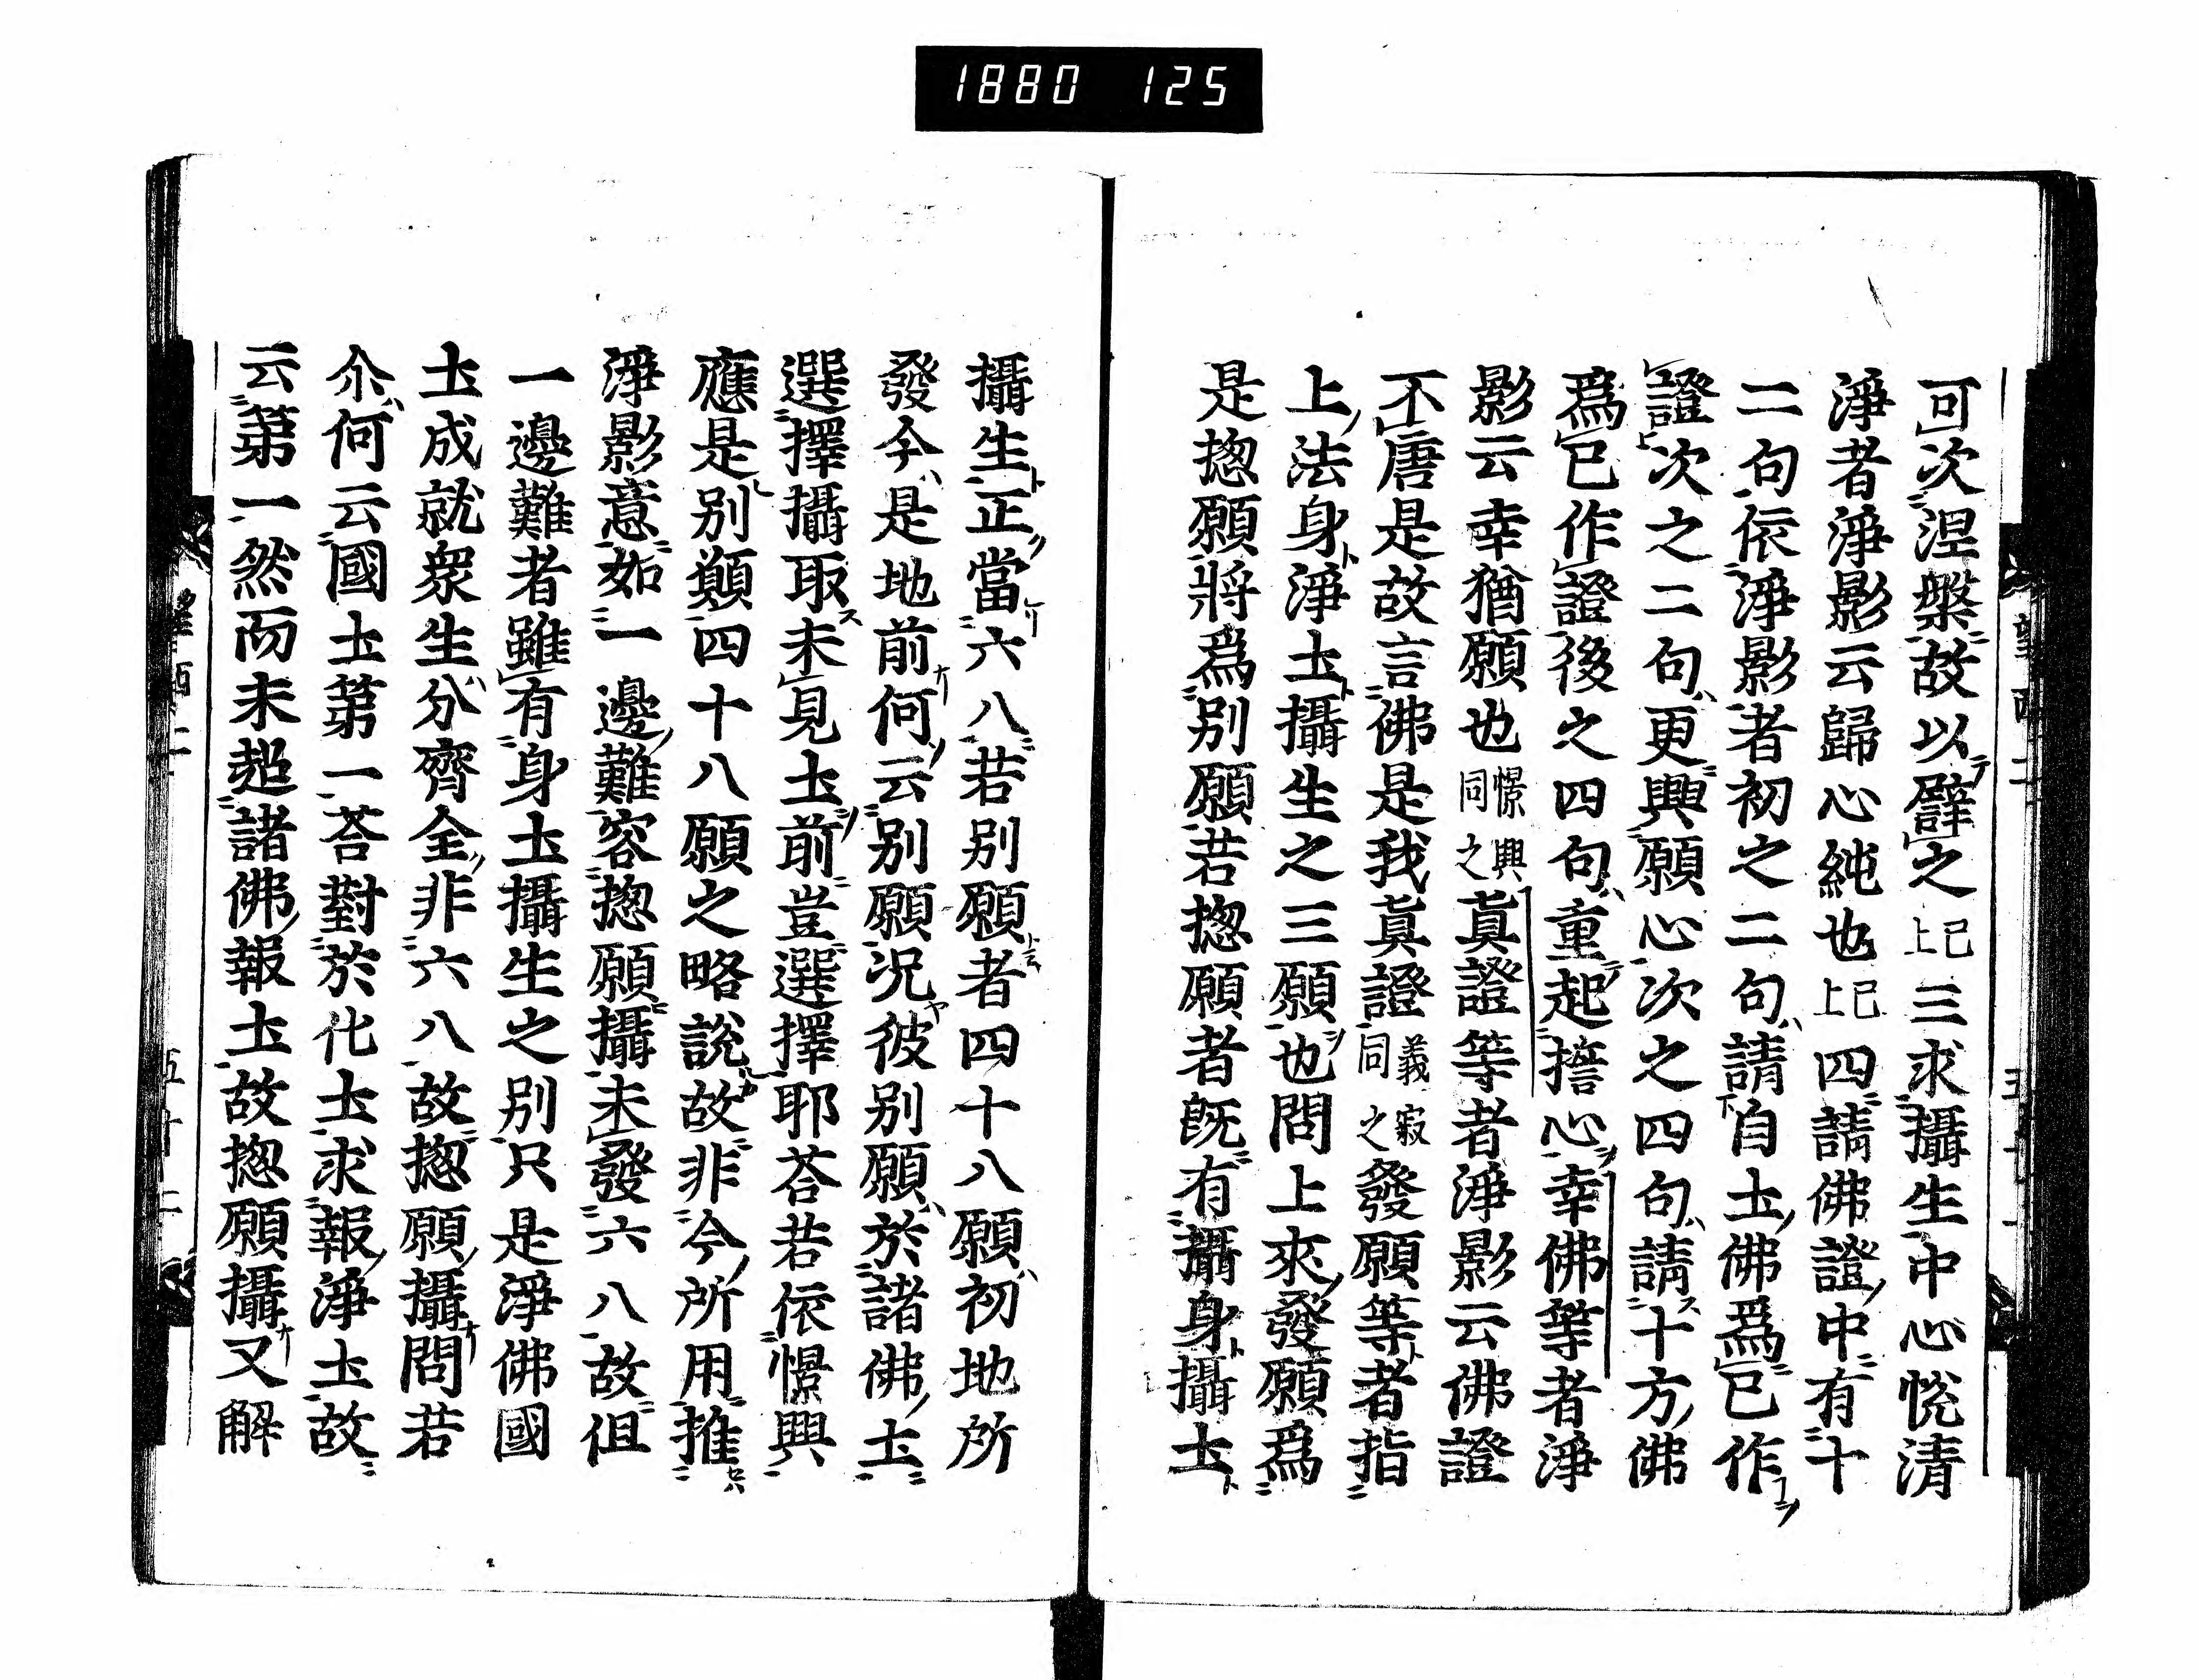 1880 125
可次涅槃故以辟之已上三求攝生中心悦清
淨者淨影云歸心純也已上四請佛證中有十
二句依淨影者初之二句請自土佛爲已作
證次之二句更興願心次之四句請十方佛
爲已作證後之四句重起誓心幸佛等者淨
影云幸猶願也憬興同之眞證等者淨影云佛證
不唐是故言佛是我眞證義寂同之發願等者指
上法身淨土攝生之三願也問上來發願爲
是揔願將爲別願若揔願者既有攝身攝土
攝生正當六八若別願者四十八願初地所
發今是地前何云別願況彼別願於諸佛土
選擇攝取未見土前豈選擇耶荅若依憬興
應是別願四十八願之略說故非今所用推
淨影意如一邊難容揔願攝未發六八故但
一邊難者雖有身土攝生之別只是淨佛國
土成就衆生分齊全非六八故揔願攝問若
尒何云國土第一荅對於化土求報淨土故
云第一然而未超諸佛報土故揔願攝又解